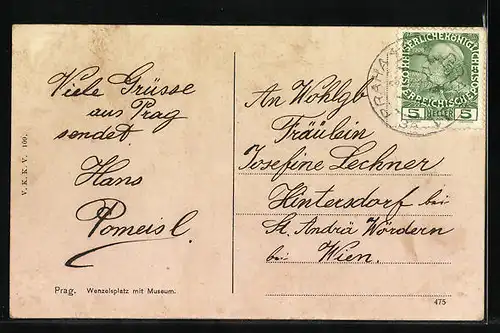 Viele Grüsse
aus Prag
sendet
Hans
Pomeisl
V. K. K. V. 100.
Prag. Wenzelsplatz mit Museum.
An Wohlgb
Fräulein
Josefine Lechner
Hintersdorf bei
St. Andrä Wördern
bei Wien.
475
PRAHA
5 HELLER 5